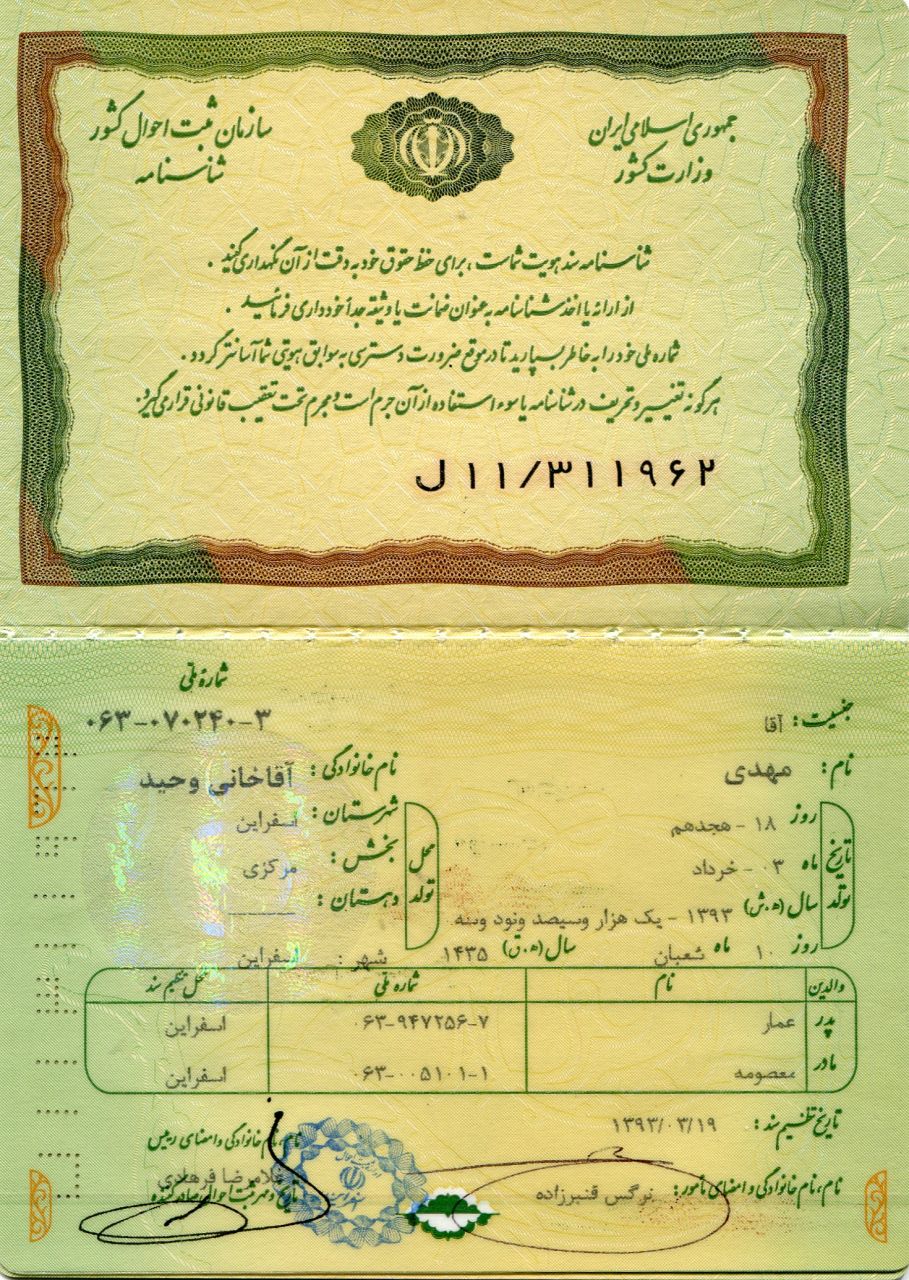 جمهوری اسلامی ایران
وزارت کشور
سازمان ثبت احوال کشور
شناسنامه
شناسنامه سند هویت شماست، برای حفظ حقوق خود به دقت از آن نگهداری کنید.
از ارائه یا اخذ شناسنامه به عنوان ضمانت یا وثیقه جداً خودداری فرمائید.
شماره ملی خود را به خاطر بسپارید تا در موقع ضرورت دسترسی به سوابق هویتی شما آسانتر گردد.
هرگونه تغییر و تحریف در شناسنامه یا سوء استفاده از آن جرم است و مجرم تحت تعقیب قانونی قرار می‌گیرد.
ل ۱۱/۳۱۱۹۶۲
شماره ملی
۰۶۳-۰۷۰۲۴۰-۳
جنسیت: آقا
نام: مهدی
نام خانوادگی: آقاخانی وحید
تاریخ تولد
روز ۱۸ - هجدهم
ماه ۰۳ - خرداد
سال (ه.ش) ۱۳۹۳ - یک هزار وسیصد ونود وسه
روز ۱۰ ماه شعبان سال (ه.ق) ۱۴۳۵
محل تولد
شهرستان: اسفراین
بخش: مرکزی
دهستان: ----------
شهر: اسفراین
والدین نام شماره ملی محل تنظیم سند
پدر عمار ۰۶۳-۹۴۷۲۵۶-۷ اسفراین
مادر معصومه ۰۶۳-۰۰۵۱۰۱-۱ اسفراین
تاریخ تنظیم سند: ۱۳۹۳/۰۳/۱۹
نام، نام خانوادگی و امضای مأمور: نرگس قنبرزاده
نام، نام خانوادگی و امضای رییس
غلامرضا فرهادی
تاریخ و مهر ثبت احوال صادرکننده